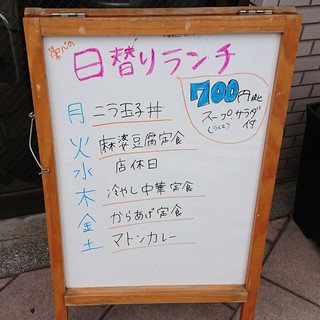 日替りランチ
700円税込
スープ、サラダ
(ライス) 付
月 ニラ玉子丼
火 麻婆豆腐定食
水 店休日
木 冷やし中華定食
金 からあげ定食
土 マトンカレー